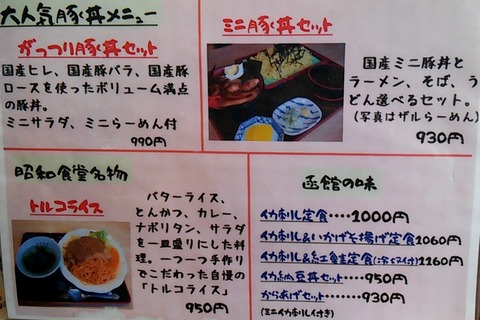 大人気豚丼メニュー
がっつり豚丼セット
国産ヒレ、国産豚バラ、国産豚
ロースを使ったボリューム満点
の豚丼。
ミニサラダ、ミニらーめん付
990円
ミニ豚丼セット
国産ミニ豚丼と
ラーメン、そば、う
どん選べるセット。
(写真はザルらーめん)
930円
昭和食堂名物
トルコライス
バターライス、
とんかつ、カレー、
ナポリタン、サラダ
を一皿盛りにした料
理。一つ一つ手作り
でこだわった自慢の
「トルコライス」
950円
函館の味
イカ刺し定食････1000円
イカ刺し&いかげそ揚げ定食1060円
イカ刺し&紅鮭定食 1160円
イカ納豆丼セット････950円
からあげセット････930円
(ミニイカ刺し付き)